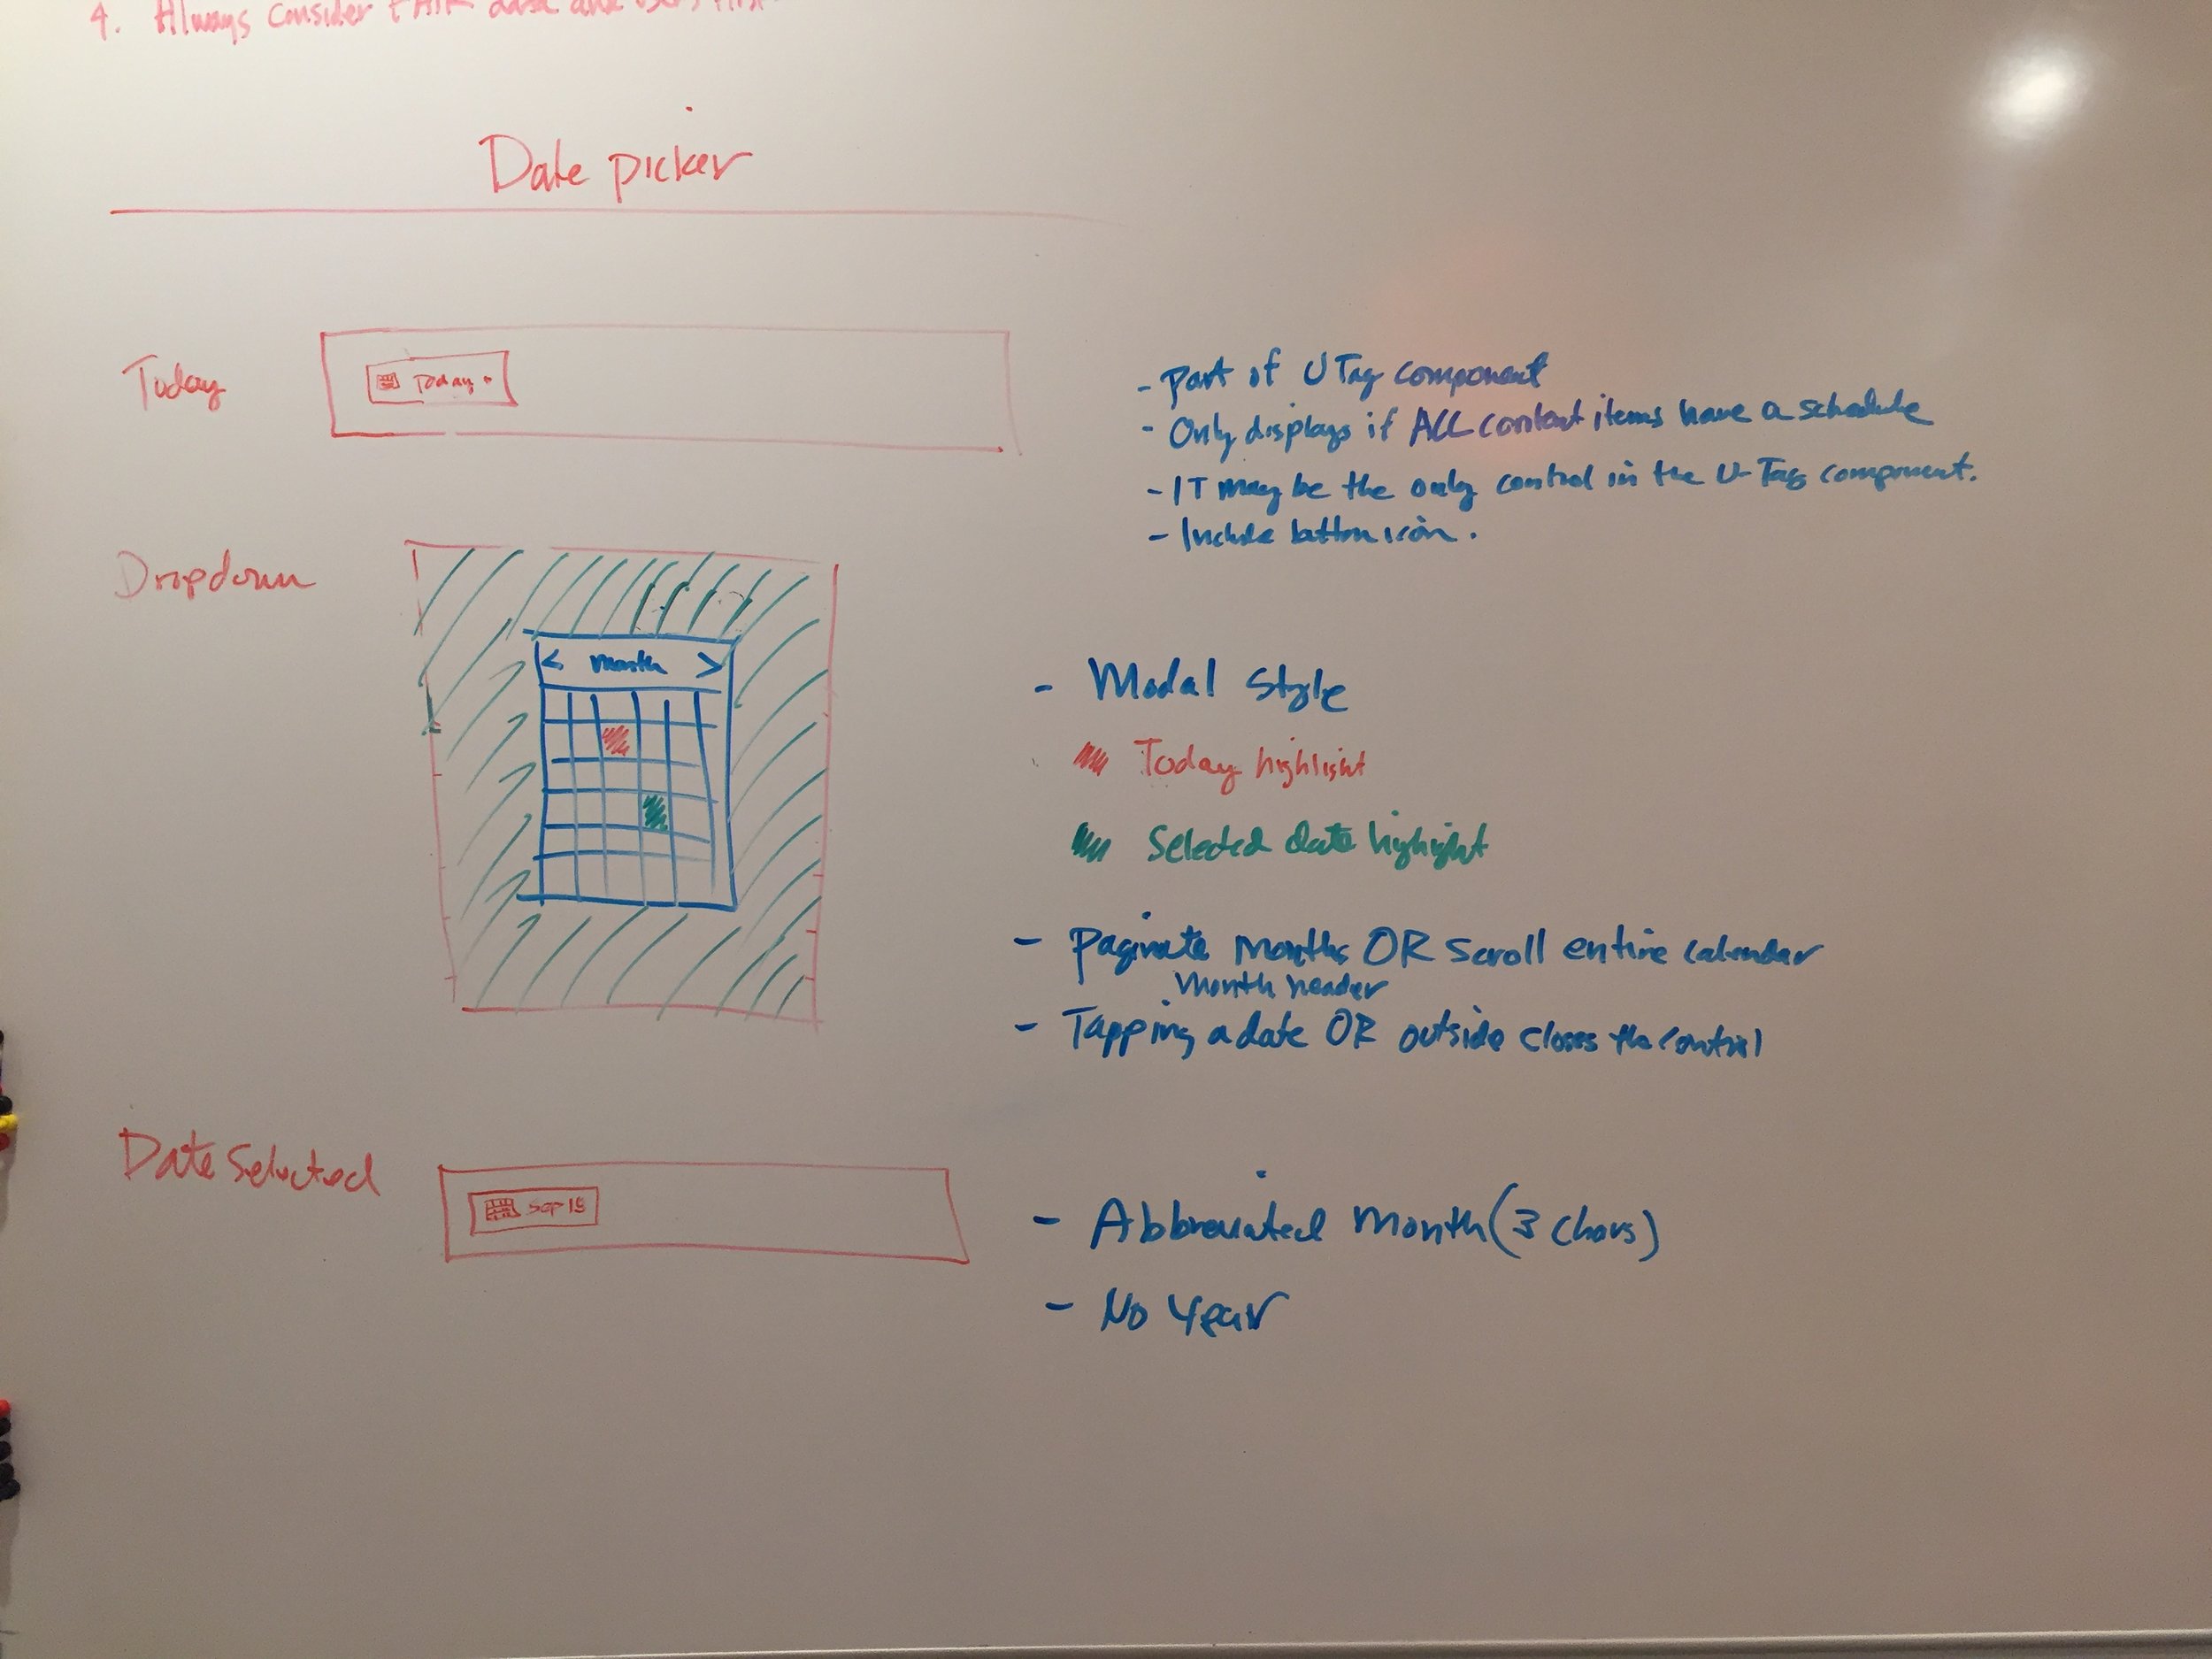 4. Always consider FAIR data and users first
Date picker
Today
Today
- Part of U Tag component
- Only displays if ALL content items have a schedule
- IT may be the only control in the U-Tag component.
- Include button icon.
Dropdown
< Month >
- Modal Style
Today highlight
Selected date highlight
- Paginate Months OR Scroll entire calendar
Month header
- Tapping a date OR outside closes the control
Date Selected
Sep 15
- Abbreviated Month (3 chars)
- No Year